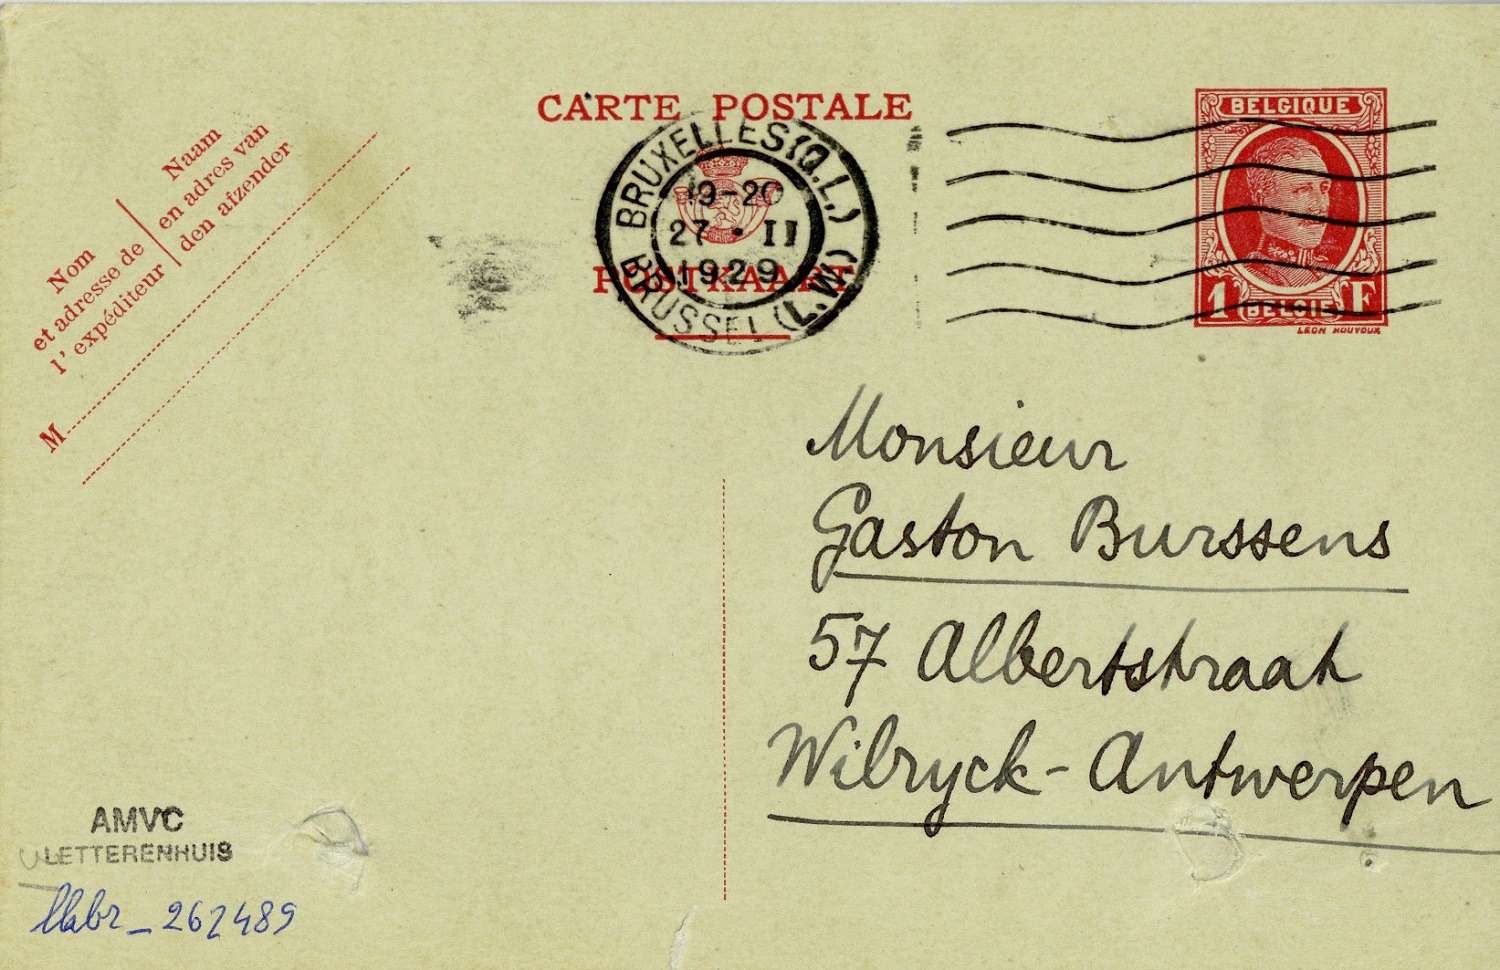 CARTE POSTALE
POSTKAART
BRUXELLES (Q.L.)
19-20
27 • II
1929
BRUSSEL (L.W.)
BELGIQUE
1 BELGIË F
LEON HOUYOUX
Nom
et adresse de
l'expéditeur
Naam
en adres van
den afzender
M
Monsieur
Gaston Burssens
57 Albertstraat
Wilryck-Antwerpen
AMVC
LETTERENHUIS
262489